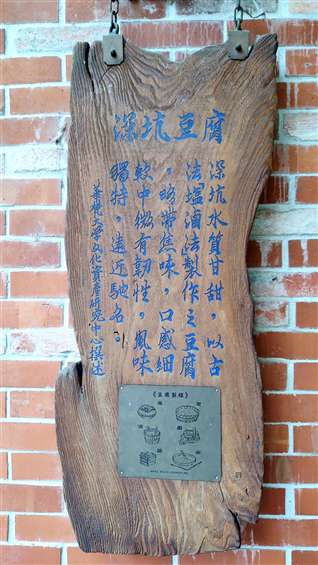 深坑豆腐
深坑水質甘甜，以古
法塩滷法製作之豆腐
，略帶焦味，口感細
緻中微有韌性，風味
獨特，遠近馳名。
華梵大學文化資產研究中心撰述
《豆腐製程》